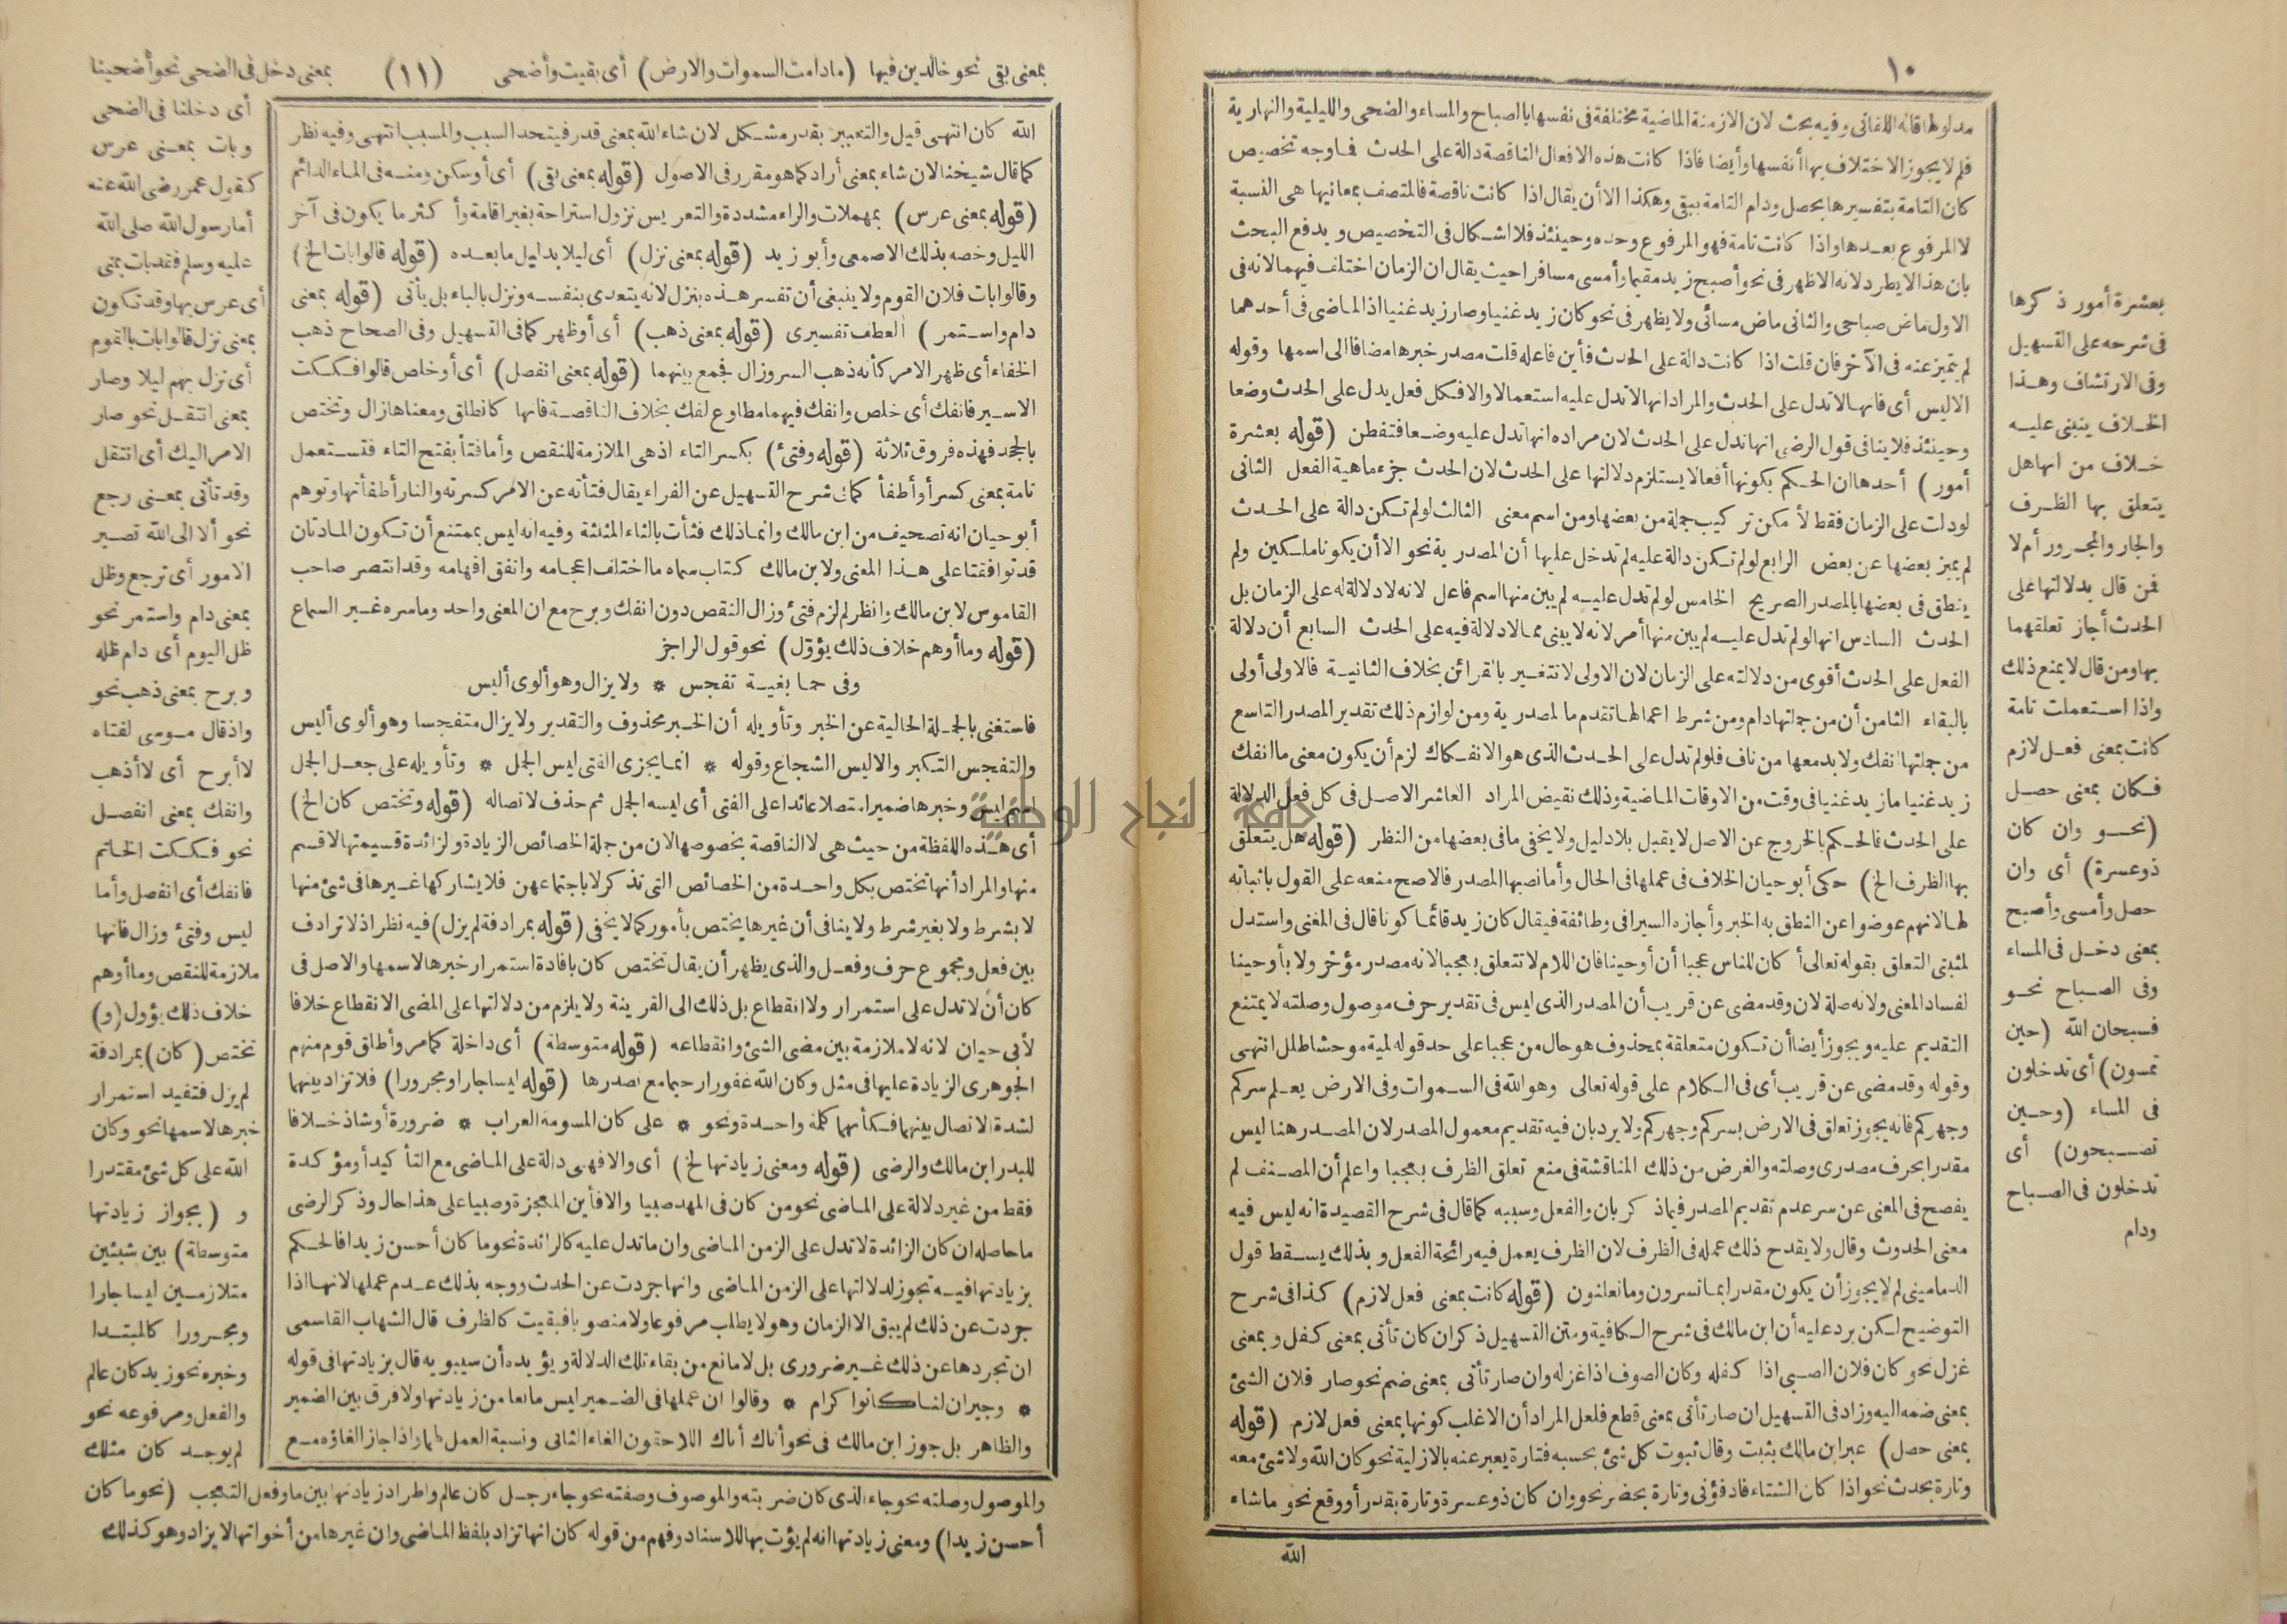 ١٠
مدلولها قاله اللقانى وفيه بحث لان الازمنة الماضية مختلفة فى نفسها بالصباح والمساء والضحى والليلية والنهارية
فلم لا يجوز الاختلاف بها أنفسها وأيضا فاذا كانت هذه الافعال الناقصة دالة على الحدث فما وجه تخصيص
كان التامة بتفسيرها بحصل ودام التامة ببقى وهكذا الا أن يقال اذا كانت ناقصة فالمتصف بمعانيها هى النسبة
لا المرفوع بعدها واذا كانت تامة فهو المرفوع وحده وحينئذ فلا اشكال فى التخصيص ويدفع البحث
بان هذا لا يطرد لانه الاظهر فى نحو أصبح زيد مقيما وأمسى مسافرا حيث يقال ان الزمان اختلف فيهما لانه فى
الاول ماض صباحى والثانى ماض مسائى ولا يظهر فى نحو كان زيد غنيا وصار زيد غنيا اذ الماضى فى أحدهما
لم يتميز عنه فى الآخر فان قلت اذا كانت دالة على الحدث فأين فاعله قلت مصدر خبرها مضافا الى اسمها وقوله
الا ليس أى فانها لا تدل على الحدث والمراد انها لا تدل عليه استعمالا والا فكل فعل يدل على الحدث وضعا
وحينئذ فلا ينافى قول الرضى انها تدل على الحدث لان مراده انها تدل عليه وضعا فتفطن (قوله بعشرة
أمور) أحدها ان الحكم بكونها أفعالا يستلزم دلالتها على الحدث لان الحدث جزء ماهية الفعل الثانى
لو دلت على الزمان فقط لأمكن تركيب جملة من بعضها ومن اسم معنى الثالث لو لم تكن دالة على الحدث
لم يميز بعضها عن بعض الرابع لو لم تكن دالة عليه لم تدخل عليها أن المصدرية نحو الا أن يكونا ملكين ولم
ينطق فى بعضها بالمصدر الصريح الخامس لو لم تدل عليه لم يبن منها اسم فاعل لانه لا دلالة له على الزمان بل
الحدث السادس انها لو لم تدل عليه لم يبن منها أمر لانه لا يبنى مما لا دلالة فيه على الحدث السابع أن دلالة
الفعل على الحدث أقوى من دلالته على الزمان لان الاولى لا تتغير بالقرائن بخلاف الثانية فالاولى أولى
بالبقاء الثامن أن من جملتها دام ومن شرط اعمالها تقدم ما المصدرية ومن لوازم ذلك تقدير المصدر التاسع
من جملتها انفك ولا بد معها من ناف فلو لم تدل على الحدث الذى هو الانفكاك لزم أن يكون معنى ما انفك
زيد غنيا ما زيد غنيا فى وقت من الاوقات الماضية وذلك نقيض المراد العاشر الاصل فى كل فعل الدلالة
على الحدث فالحكم بالخروج عن الاصل لا يقبل بلا دليل ولا يخفى ما فى بعضها من النظر (قوله هل يتعلق
بها الظرف الخ) حكى أبو حيان الخلاف فى عملها فى الحال وأما نصبها المصدر فالاصح منعه على القول باثباته
لها لانهم عوضوا عن النطق به الخبر وأجازه السيرافى وطائفة فيقال كان زيد قائما كونا قال فى المغنى واستدل
لمثبتى التعلق بقوله تعالى أكان للناس عجبا أن أوحينا فان اللام لا تتعلق بعجبا لانه مصدر مؤخر ولا بأوحينا
لفساد المعنى ولانه صلة لان وقد مضى عن قريب أن المصدر الذى ليس فى تقدير حرف موصول وصلته لا يمتنع
التقديم عليه ويجوز أيضا أن تكون متعلقة بمحذوف هو حال من عجبا على حد قوله لمية موحشا طلل انتهى
وقوله وقد مضى عن قريب أى فى الكلام على قوله تعالى وهو الله فى السموات وفى الارض يعلم سركم
وجهركم فانه يجوز تعلق فى الارض بسركم وجهركم ولا يرد بان فيه تقديم معمول المصدر لان المصدر هنا ليس
مقدرا بحرف مصدرى وصلته والغرض من ذلك المناقشة فى منع تعلق الظرف بعجبا واعلم أن المصنف لم
يفصح فى المغنى عن سر عدم تقديم المصدر فيما ذكر بان والفعل وسببه كما قال فى شرح القصيدة انه ليس فيه
معنى الحدوث وقال ولا يقدح ذلك عمله فى الظرف لان الظرف يعمل فيه رائحة الفعل وبذلك يسقط قول
الدمامينى لم لا يجوز أن يكون مقدرا بما تسرون وما تعلنون (قوله كانت بمعنى فعل لازم) كذا فى شرح
التوضيح لكن يرد عليه أن ابن مالك فى شرح الكافية ومتن التسهيل ذكر ان كان تأتى بمعنى كفل وبمعنى
غزل نحو كان فلان الصبى اذا كفله وكان الصوف اذا غزله وان صار تأتى بمعنى ضم نحو صار فلان الشئ
بمعنى ضمه اليه وزاد فى التسهيل ان صار تأتى بمعنى قطع فلعل المراد أن الاغلب كونها بمعنى فعل لازم (قوله
بمعنى حصل) عبر ابن مالك بثبت وقال ثبوت كل شئ بحسبه فتارة يعبر عنه بالازلية نحو كان الله ولا شئ معه
وتارة بحدث نحو اذا كان الشتاء فادفؤنى وتارة بحضر نحو وان كان ذو عسرة وتارة بقدر أو وقع نحو ما شاء
الله
بعشرة أمور ذكرها
فى شرحه على التسهيل
وفى الارتشاف وهذا
الخلاف ينبنى عليه
خلاف من انها هل
يتعلق بها الظرف
والجار والمجرور أم لا
فمن قال بدلالتها على
الحدث أجاز تعلقهما
بها ومن قال لا يمنع ذلك
واذا استعملت تامة
كانت بمعنى فعل لازم
فكان بمعنى حصل
(نحو وان كان
ذو عسرة) أى وان
حصل وأمسى وأصبح
بمعنى دخل فى المساء
وفى الصباح نحو
فسبحان الله (حين
تمسون) أى تدخلون
فى المساء (وحين
تصبحون) أى
تدخلون فى الصباح
ودام
بمعنى بقى نحو خالدين فيها (مادامت السموات والارض) أى بقيت وأضحى (١١) بمعنى دخل فى الضحى نحو أضحينا
الله كان انتهى قيل والتعبير بقدر مشكل لان شاء الله بمعنى قدر فيتحد السبب والمسبب انتهى وفيه نظر
كما قال شيخنا لان شاء بمعنى أراد كما هو مقرر فى الاصول (قوله بمعنى بقى) أى أو سكن ومنه فى الماء الدائم
(قوله بمعنى عرس) بمهملات والراء مشددة والتعريس نزول استراحة بغير اقامة وأكثر ما يكون فى آخر
الليل وخصه بذلك الاصمعى وأبو زيد (قوله بمعنى نزل) أى ليلا بدليل ما بعده (قوله قالوا بات الخ)
وقالوا بات فلان القوم ولا ينبغى أن تفسر هذه بنزل لانه يتعدى بنفسه ونزل بالباء بل بأتى (قوله بمعنى
دام واستمر) العطف تفسيرى (قوله بمعنى ذهب) أى أو ظهر كما فى التسهيل وفى الصحاح ذهب
الخفاء أى ظهر الامر كأنه ذهب السر وزال فجمع بينهما (قوله بمعنى انفصل) أى أو خلص قالوا فككت
الاسير فانفك أى خلص وانفك فيهما مطاوع لفك بخلاف الناقصة فانها كانطلق ومعناها زال وتختص
بالجحد فهذه فروق ثلاثة (قوله وفتئ) بكسر التاء اذ هى الملازمة للنقص وأما فتأ بفتح التاء فتستعمل
تامة بمعنى كسر أو أطفأ كما فى شرح التسهيل عن الفراء يقال فتأته عن الامر كسرته والنار أطفأتها وتوهم
أبو حيان انه تصحيف من ابن مالك وانما ذلك فثأت بالثاء المثلثة وفيه انه ليس بممتنع أن تكون المادتان
قد توافقتا على هذا المعنى ولابن مالك كتاب سماه ما اختلف اعجامه واتفق افهامه وقد انتصر صاحب
القاموس لابن مالك وانظر لم لزم فتئ وزال النقص دون انفك وبرح مع ان المعنى واحد وما سره غير السماع
(قوله وما أوهم خلاف ذلك يؤوّل) نحو قول الراجز
وفى حما بغية تفجس * ولا يزال وهو ألوى أليس
فاستغنى بالجملة الحالية عن الخبر وتأويله أن الخبر محذوف والتقدير ولا يزال متفجسا وهو ألوى أليس
والتفجس التكبر والاليس الشجاع وقوله * انما يجزى الفتى ليس الجمل * وتأويله على جعل الجمل
اسم ليس وخبرها ضميرا متصلا عائدا على الفتى أى ليسه الجمل ثم حذف لاتصاله (قوله وتختص كان الخ)
أى هذه اللفظة من حيث هى لا الناقصة بخصوصها لان من جملة الخصائص الزيادة والزائدة قسيمتها لا قسم
منها والمراد أنها تختص بكل واحدة من الخصائص التى تذكر لا باجتماعهن فلا يشاركها غيرها فى شئ منها
لا بشرط ولا بغير شرط ولا ينافى أن غيرها يختص بأمور كما لا يخفى (قوله بمرادفة لم يزل) فيه نظر اذ لا ترادف
بين فعل ومجموع حرف وفعل والذى يظهر أن يقال تختص كان بافادة استمرار خبرها لاسمها والاصل فى
كان أن لا تدل على استمرار ولا انقطاع بل ذلك الى القرينة ولا يلزم من دلالتها على المضى الانقطاع خلافا
لأبى حيان لانه لا ملازمة بين مضى الشئ وانقطاعه (قوله متوسطة) أى داخلة كما مر وأطلق قوم منهم
الجوهرى الزيادة عليها فى مثل وكان الله غفورا رحيما مع تصدرها (قوله ليسا جارا ومجرورا) فلا تزاد بينهما
لشدة الاتصال بينهما فكأنهما كلمة واحدة ونحو * على كان المسومة العراب * ضرورة أو شاذ خلافا
للبدر ابن مالك والرضى (قوله ومعنى زيادتها الخ) أى والا فهى دالة على الماضى مع التأكيد أو مؤكدة
فقط من غير دلالة على الماضى نحو من كان فى المهد صبيا والا فأين المعجزة وصبيا على هذا حال وذكر الرضى
ما حاصله ان كان الزائدة لا تدل على الزمن الماضى وان ما تدل عليه كالزائدة نحو ما كان أحسن زيدا فالحكم
بزيادتها فيه تجوز لدلالتها على الزمن الماضى وانها جردت عن الحدث ووجه بذلك عدم عملها لانها اذا
جردت عن ذلك لم يبق الا الزمان وهو لا يطلب مرفوعا ولا منصوبا فبقيت كالظرف قال الشهاب القاسمى
ان تجردها عن ذلك غير ضرورى بل لا مانع من بقاء تلك الدلالة ويؤيده أن سيبويه قال بزيادتها فى قوله
* وجيران لنا كانوا كرام * وقالوا ان عملها فى الضمير ليس مانعا من زيادتها ولا فرق بين الضمير
والظاهر بل جوز ابن مالك فى نحو أتاك أتاك اللاحقون الغاء الثانى ونسبة العمل لهما واذا جاز الغاؤه مع
أى دخلنا فى الضحى
وبات بمعنى عرس
كقول عمر رضى الله عنه
أما رسول الله صلى الله
عليه وسلم فقد بات بمنى
أى عرس بها وقد تكون
بمعنى نزل قالوا بات بالقوم
أى نزل بهم ليلا وصار
بمعنى انتقل نحو صار
الامر اليك أى انتقل
وقد تأتى بمعنى رجع
نحو ألا الى الله تصير
الامور أى ترجع وظل
بمعنى دام واستمر نحو
ظل اليوم أى دام ظله
وبرح بمعنى ذهب نحو
واذ قال موسى لفتاه
لا أبرح أى لا أذهب
وانفك بمعنى انفصل
نحو فككت الخاتم
فانفك أى انفصل وأما
ليس وفتئ وزال فانها
ملازمة للنقص وما أوهم
خلاف ذلك يؤول (و)
تختص (كان) بمرادفة
لم يزل فتفيد استمرار
خبرها لاسمها نحو وكان
الله على كل شئ مقتدرا
و (بجواز زيادتها
متوسطة) بين شيئين
متلازمين ليسا جارا
ومجرورا كالمبتدا
وخبره نحو زيد كان عالم
والفعل ومرفوعه نحو
لم يوجد كان مثلك
والموصول وصلته نحو جاء الذى كان ضربته والموصوف وصفته نحو جاء رجل كان عالم واطراد زيادتها بين ما وفعل التعجب (نحو ما كان
أحسن زيدا) ومعنى زيادتها انه لم يؤت بها للاسناد وفهم من قوله كان انها تزاد بلفظ الماضى وان غيرها من أخواتها لا يزاد وهو كذلك
جامعة النجاح الوطنية